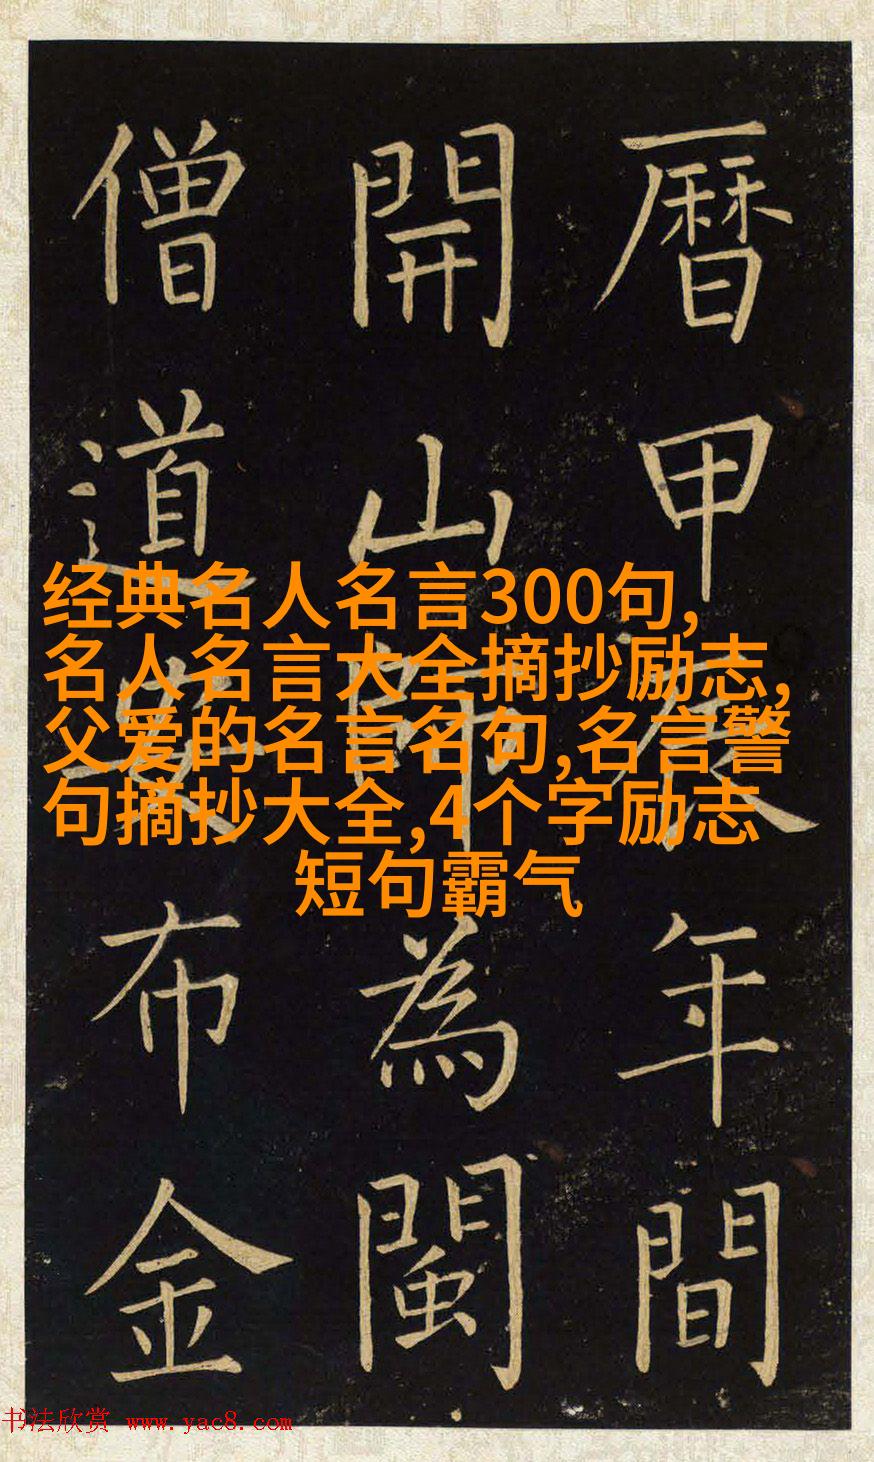 曆甲辰年間
開山師為閩
僧道布金
经典名人名言300句,
名人名言大全摘抄励志,
父爱的名言名句,名言警
句摘抄大全,4个字励志
短句霸气
书法欣赏 www.yac8.com